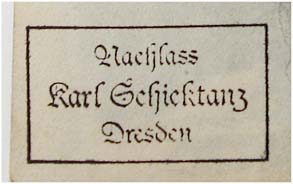 Nachlass
Karl Schicktanz
Dresden